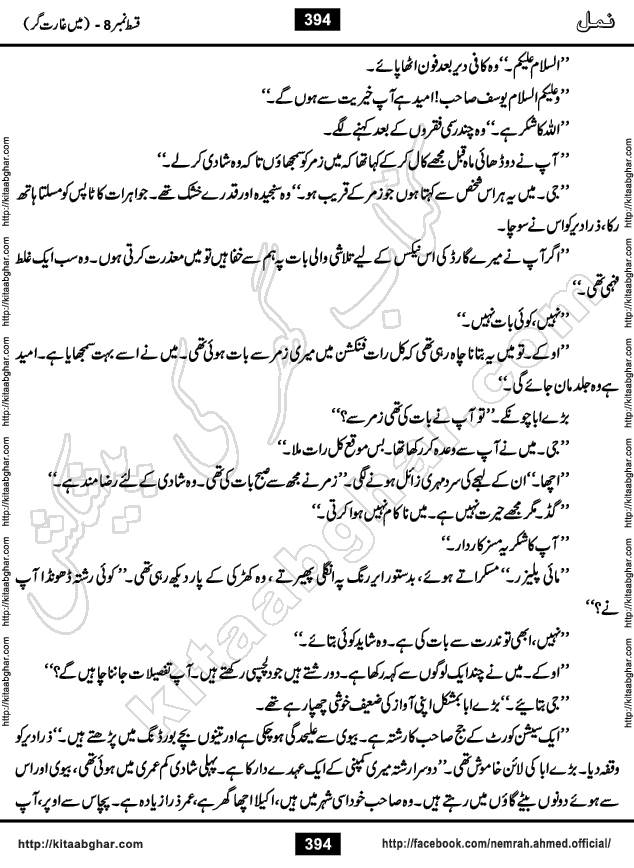 نمل
394
قسط نمبر 8 - (میں غارت گر)
’’السلام علیکم۔‘‘ وہ کافی دیر بعد فون اٹھا پائے۔
’’وعلیکم السلام یوسف صاحب! امید ہے آپ خیریت سے ہوں گے۔‘‘
’’اللہ کا شکر ہے۔‘‘ وہ چند رسمی فقروں کے بعد کہنے لگے۔
’’آپ نے دو ڈھائی ماہ قبل مجھے کال کر کے کہا تھا کہ میں زمر کو سمجھاؤں تا کہ وہ شادی کر لے۔‘‘
’’جی۔ میں یہ ہر اس شخص سے کہتا ہوں جو زمر کے قریب ہو۔‘‘ وہ سنجیدہ اور قدرے خشک تھے۔ جواہرات کا ٹاپس کو مسلتا ہاتھ
رکا، ذرا دیر کو اس نے سوچا۔
’’اگر آپ نے میرے گارڈ کی اس نیکلس کے لیے تلاشی والی بات پہ ہم سے خفا ہیں تو میں معذرت کرتی ہوں۔ وہ سب ایک غلط
فہمی تھی۔‘‘
’’نہیں، کوئی بات نہیں۔‘‘
’’اوکے۔ تو میں یہ بتانا چاہ رہی تھی کہ کل رات فنکشن میں میری زمر سے بات ہوئی تھی۔ میں نے اسے بہت سمجھایا ہے۔ امید
ہے وہ جلد مان جائے گی۔‘‘
بڑے ابا چونکے۔ ’’تو آپ نے بات کی تھی زمر سے؟‘‘
’’جی۔ میں نے آپ سے وعدہ کر رکھا تھا۔ بس موقع کل رات ملا۔‘‘
’’اچھا۔‘‘ ان کے لہجے کی سرد مہری زائل ہونے لگی۔ ’’زمر نے مجھ سے صبح بات کی تھی۔ وہ شادی کے لئے رضامند ہے۔‘‘
’’گڈ۔ مگر مجھے حیرت نہیں ہے۔ میں ناکام نہیں ہوا کرتی۔‘‘
’’آپ کا شکریہ مسز کاردار۔‘‘
’’مائی پلیزر۔‘‘ مسکراتے ہوئے، بدستور ایررنگ پہ انگلی پھیرتے، وہ کھڑکی کے پار دیکھ رہی تھی۔ ’’کوئی رشتہ ڈھونڈا آپ
نے؟‘‘
’’نہیں، ابھی تو ندرت سے بات کی ہے۔ وہ شاید کوئی بتائے۔‘‘
’’اوکے۔ میں نے چند ایک لوگوں سے کہہ رکھا ہے۔ دو رشتے ہیں جو دلچسپی رکھتے ہیں۔ آپ تفصیلات جاننا چاہیں گے؟‘‘
’’جی بتائیے۔‘‘ بڑے ابا بمشکل اپنی آواز کی ضعیف خوشی چھپا رہے تھے۔
’’ایک سیشن کورٹ کے جج صاحب کا رشتہ ہے۔ بیوی سے علیحدگی ہو چکی ہے اور تینوں بچے بورڈنگ میں پڑھتے ہیں۔‘‘ ذرا دیر کو
وقفہ دیا۔ بڑے ابا کی لائن خاموش تھی۔ ’’دوسرا رشتہ میری کمپنی کے ایک عہدے دار کا ہے۔ پہلی شادی کم عمری میں ہوئی تھی، بیوی اور اس
سے ہوئے دونوں بیٹے گاؤں میں رہتے ہیں۔ وہ صاحب خود اسی شہر میں ہیں، اکیلا اچھا گھر ہے، عمر ذرا زیادہ ہے۔ پچاس سے اوپر، آپ
http://kitaabghar.com
394
http://facebook.com/nemrah.ahmed.official/
http://kitaabghar.com
http://kitaabghar.com
http://kitaabghar.com
http://kitaabghar.com
http://kitaabghar.com
http://kitaabghar.com
http://kitaabghar.com
http://kitaabghar.com
http://kitaabghar.com
http://kitaabghar.com
http://kitaabghar.com
http://kitaabghar.com
کتاب گھر کی پیشکش
kitaabghar.com